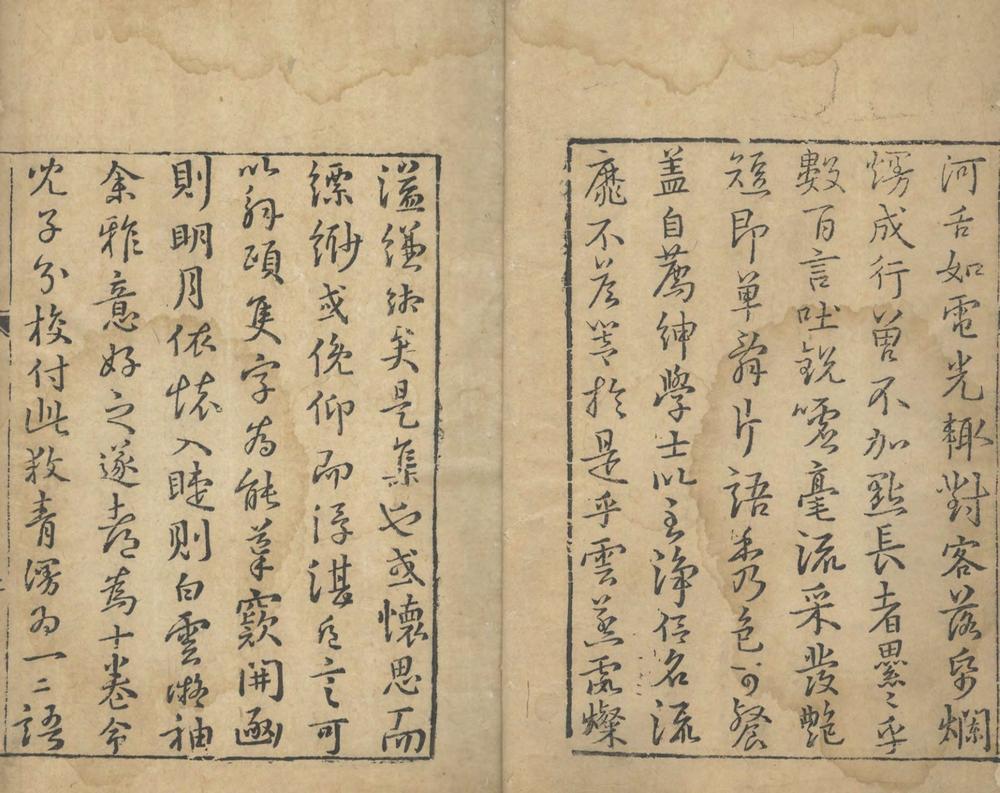 河舌如電光輙對客落帋爛
熳成行曾不加點長者累〻乎
數百言吐銳噓毫流采發艷
短即單辭片語秀色可餐
蓋自薦紳學士以至淨侶名流
靡不於是乎雲蒸霞燦
溢縑緗矣是集也或懷思而
縹緲或俛仰而浮湛片言可
以解頤隻字為能葦窾開函
則明月依懷入睫則白雲凝袖
余雅意好之遂都為十卷命
兒子分校付此殺青漫為一二語